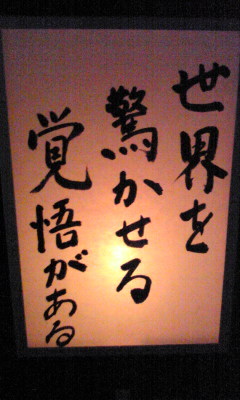 世界を
驚かせる
覚悟がある